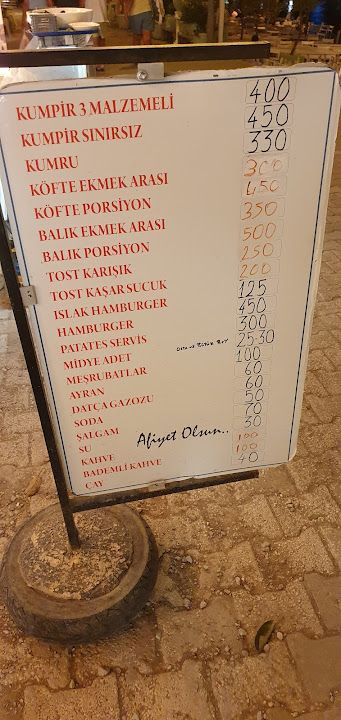 KUMPİR 3 MALZEMELİ 400
KUMPİR SINIRSIZ 450
KUMRU 330
KÖFTE EKMEK ARASI 300
KÖFTE PORSİYON 450
BALIK EKMEK ARASI 350
BALIK PORSİYON 500
TOST KARIŞIK 250
TOST KAŞAR SUCUK 200
ISLAK HAMBURGER 125
HAMBURGER 450
PATATES SERVİS 300
MİDYE ADET 25-30
MEŞRUBATLAR 100
AYRAN 60
DATÇA GAZOZU 60
SODA 50
ŞALGAM 70
SU 30
KAHVE 100
BADEMLİ KAHVE 100
ÇAY 40
Afiyet Olsun..